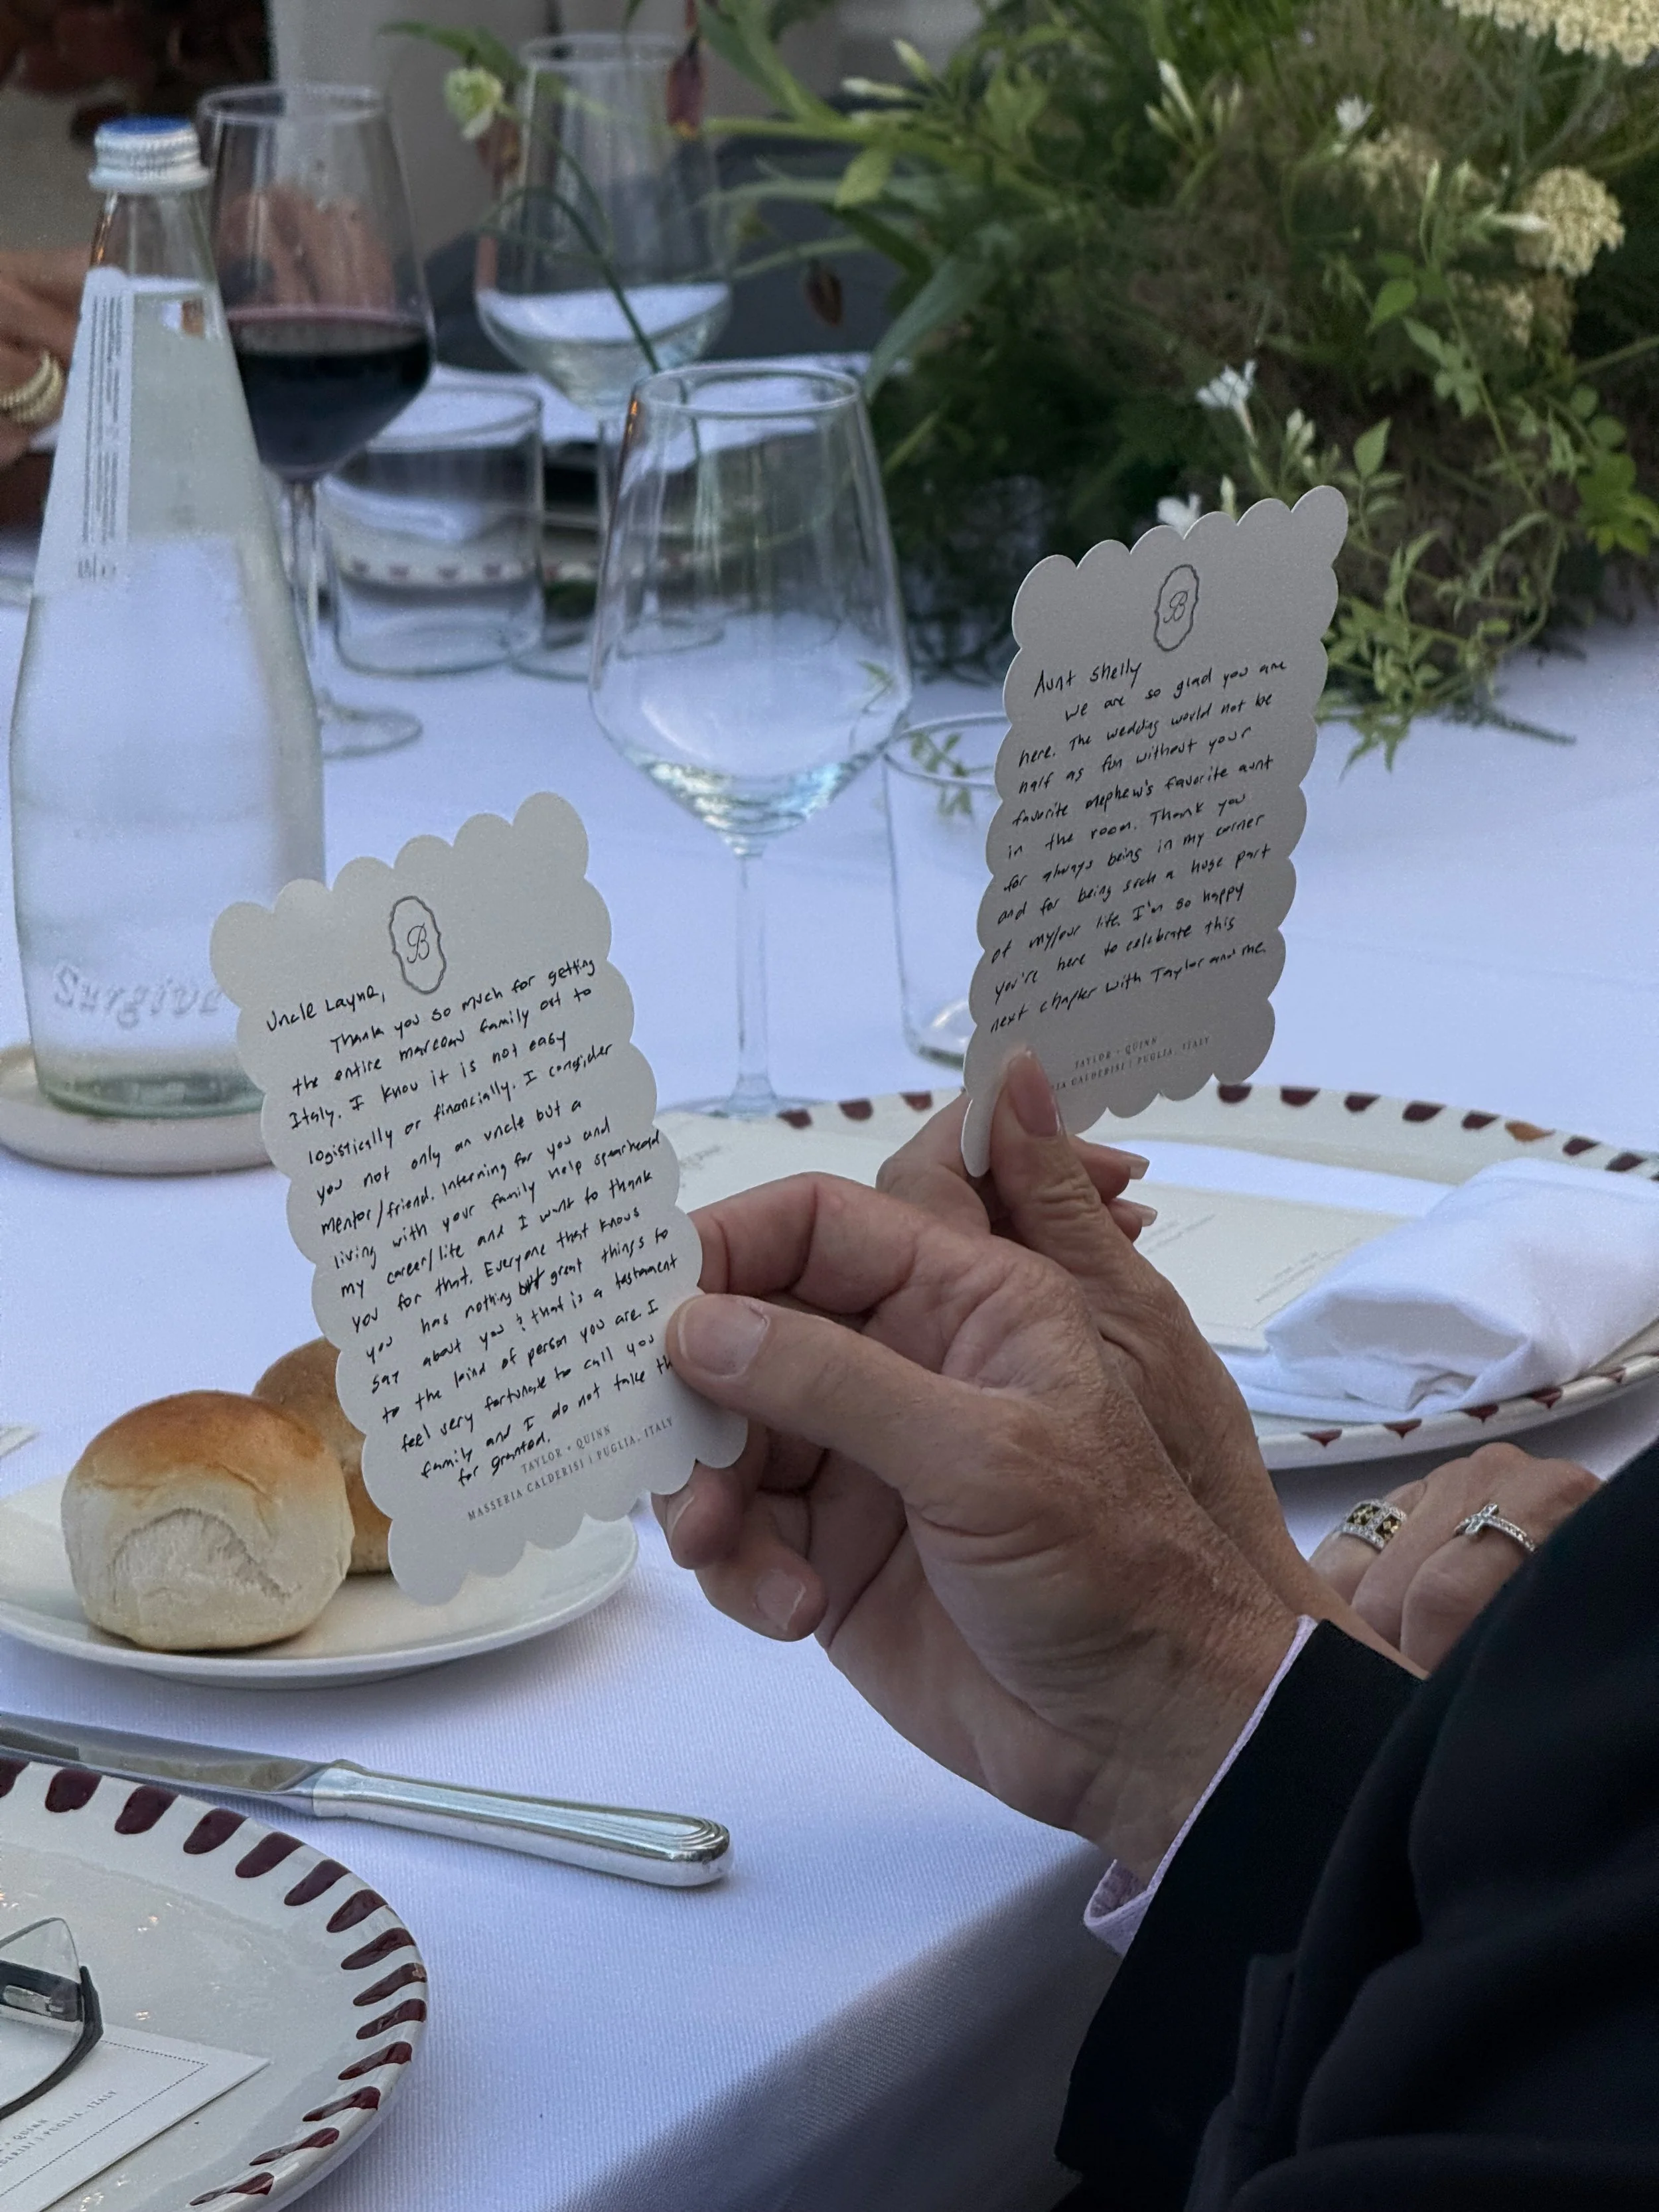 Surgiva
B
Uncle Layne,
Thank you so much for getting
the entire marcoux family out to
Italy. I know it is not easy
logistically or financially. I consider
you not only an uncle but a
mentor/friend. Interning for you and
living with your family help spearhead
my career/life and I want to thank
you for that. Everyone that knows
you has nothing but great things to
say about you & that is a testament
to the kind of person you are. I
feel very fortunate to call you
family and I do not take th
for granted.
TAYLOR + QUINN
MASSERIA CALDERISI | PUGLIA, ITALY
B
Aunt Shelly
We are so glad you are
here. The wedding would not be
half as fun without your
favorite nephew's favorite aunt
in the room. Thank you
for always being in my corner
and for being such a huge part
of my/our life. I'm so happy
you're here to celebrate this
next chapter with Taylor and me.
TAYLOR + QUINN
IA CALDERISI | PUGLIA, ITALY
+ QUINN
DERISI | PUGLIA, ITALY